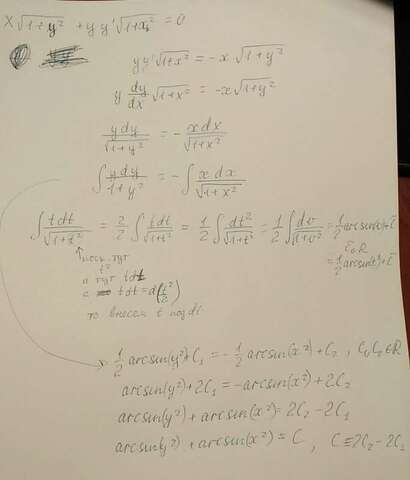 x√(1+y²) + yy'√(1+x²) = 0
yy'√(1+x²) = -x√(1+y²)
y dy/dx √(1+x²) = -x√(1+y²)
ydy/√(1+y²) = - xdx/√(1+x²)
∫ ydy/√(1+y²) = -∫ xdx/√(1+x²)
∫ tdt/√(1+t²) = 2/2 ∫ tdt/√(1+t²) = 1/2 ∫ dt²/√(1+t²) = 1/2 ∫ dv/√(1+v²) = 1/2 arcsin(v)+C̃
C̃∈R
= 1/2 arcsin(t²)+C̃
тут
t²
а тут tdt
с tdt = d(t²/2)
то внесем t под d
1/2 arcsin(y²)+C₁ = - 1/2 arcsin(x²)+C₂ , C₁C₂∈R
arcsin(y²)+2C₁ = -arcsin(x²)+2C₂
arcsin(y²) + arcsin(x²) = 2C₂ - 2C₁
arcsin(y²) + arcsin(x²) = C , C=2C₂-2C₁